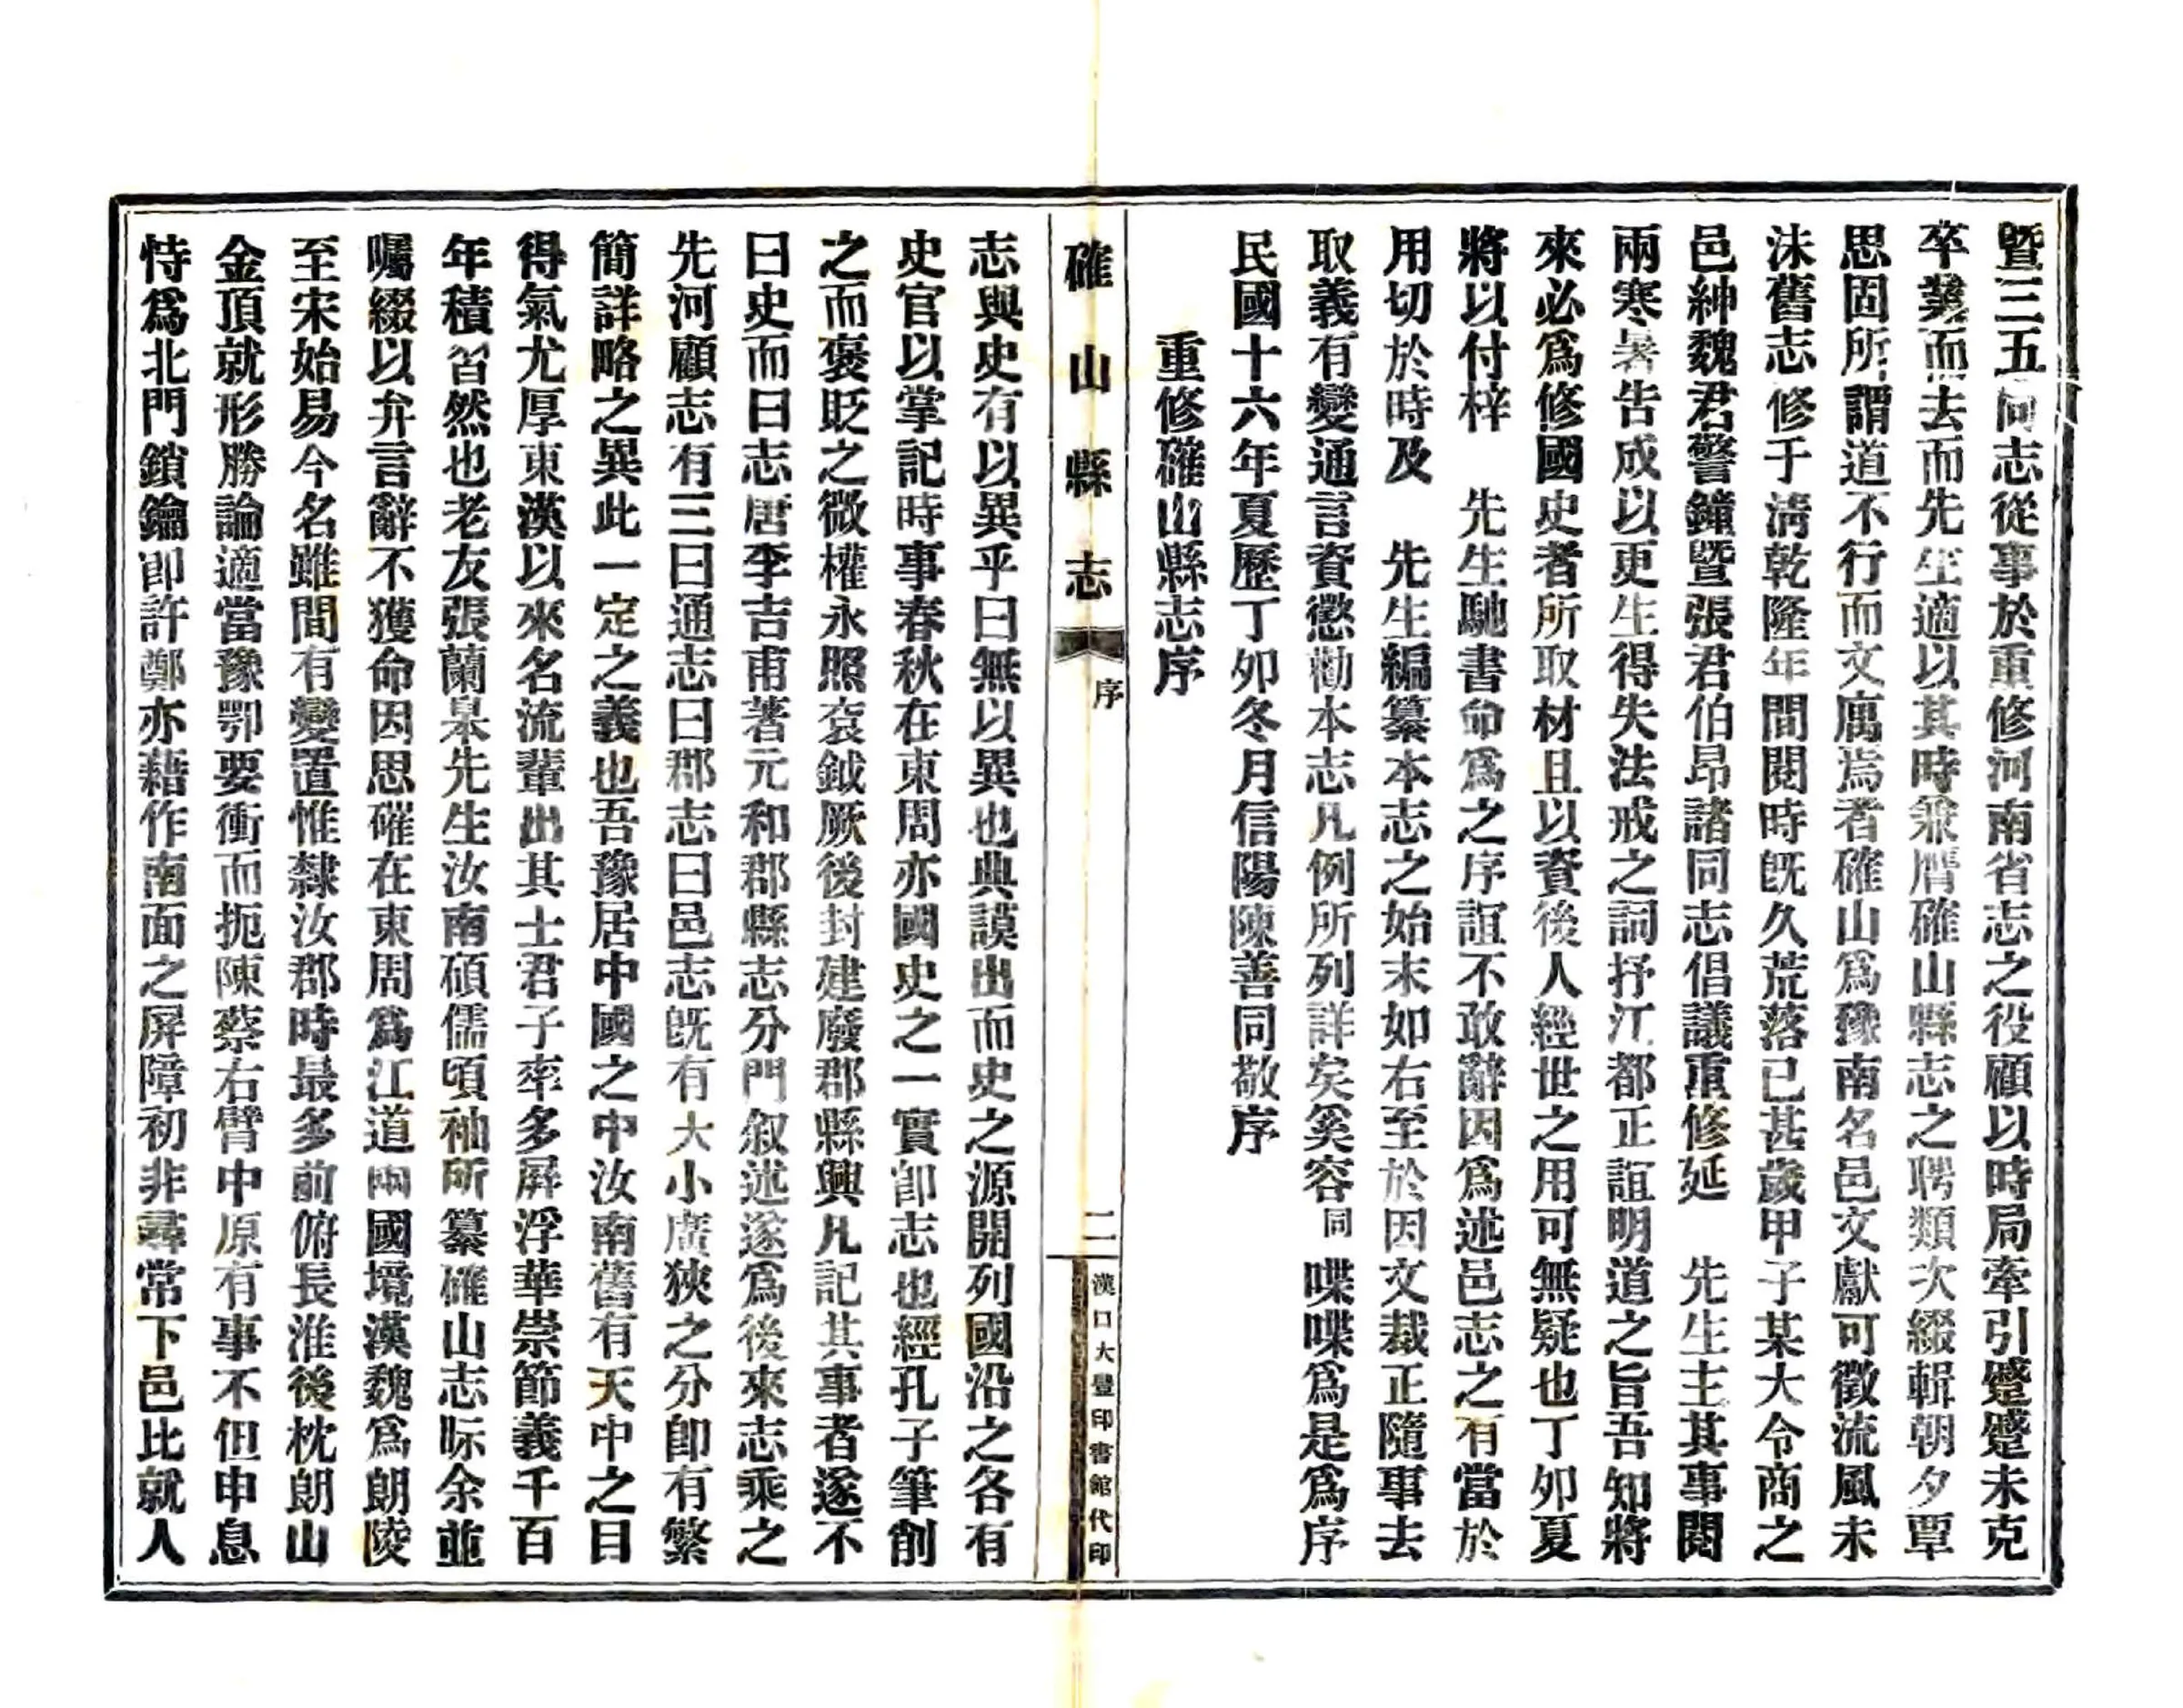 暨三五同志從事於重修河南省志之役顧以時局牽引蹙蹙未克
卒業而去而先生適以其時兼膺確山縣志之聘類次綴輯朝夕覃
思固所謂道不行而文廣焉者確山爲豫南名邑文獻可徵流風未
沬舊志修于淸乾隆年間閱時既久荒落已甚歲甲子某大令商之
邑紳魏君警鐘暨張君伯昂諸同志倡議重修延　先生主其事閱
兩寒暑告成以更生得失法戒之詞抒江都正誼明道之旨吾知將
來必爲修國史者所取材且以資後人經世之用可無疑也丁夘夏
將以付梓　先生馳書命爲之序誼不敢辭因爲述邑志之有當於
用切於時及　先生編纂本志之始末如右至於因文裁正隨事去
取義有變通言資懲勸本志凡例所列詳矣奚容同喋喋爲是爲序
民國十六年夏歷丁夘冬月信陽陳善同敬序
重修確山縣志序
確山縣志
序
二
漢口大豐印書館代印
志與史有以異乎曰無以異也典謨出而史之源開列國沿之各有
史官以掌記時事春秋在東周亦國史之一實卽志也經孔子筆削
之而褒貶之微權永照袞鉞厥後封建廢郡縣興凡記其事者遂不
曰史而曰志唐李吉甫著元和郡縣志分門叙述遂爲後來志乘之
先河顧志有三曰通志曰郡志曰邑志既有大小廣狹之分卽有繁
簡詳略之異此一定之義也吾豫居中國之中汝南舊有天中之目
得氣尤厚東漢以來名流輩出其士君子率多屏浮華崇節義千百
年積習然也老友張蘭杲先生汝南碩儒頃袖所纂確山志眎余並
囑綴以弁言辭不獲命因思確在東周爲江道兩國境漢魏爲朗陵
至宋始易今名雖間有變置惟隸汝郡時最多前俯長淮後枕朗山
金頂就形勝論適當豫鄂要衝而扼陳蔡右臂中原有事不但申息
恃爲北門鎖鑰卽許鄭亦藉作南面之屏障初非尋常下邑比就人